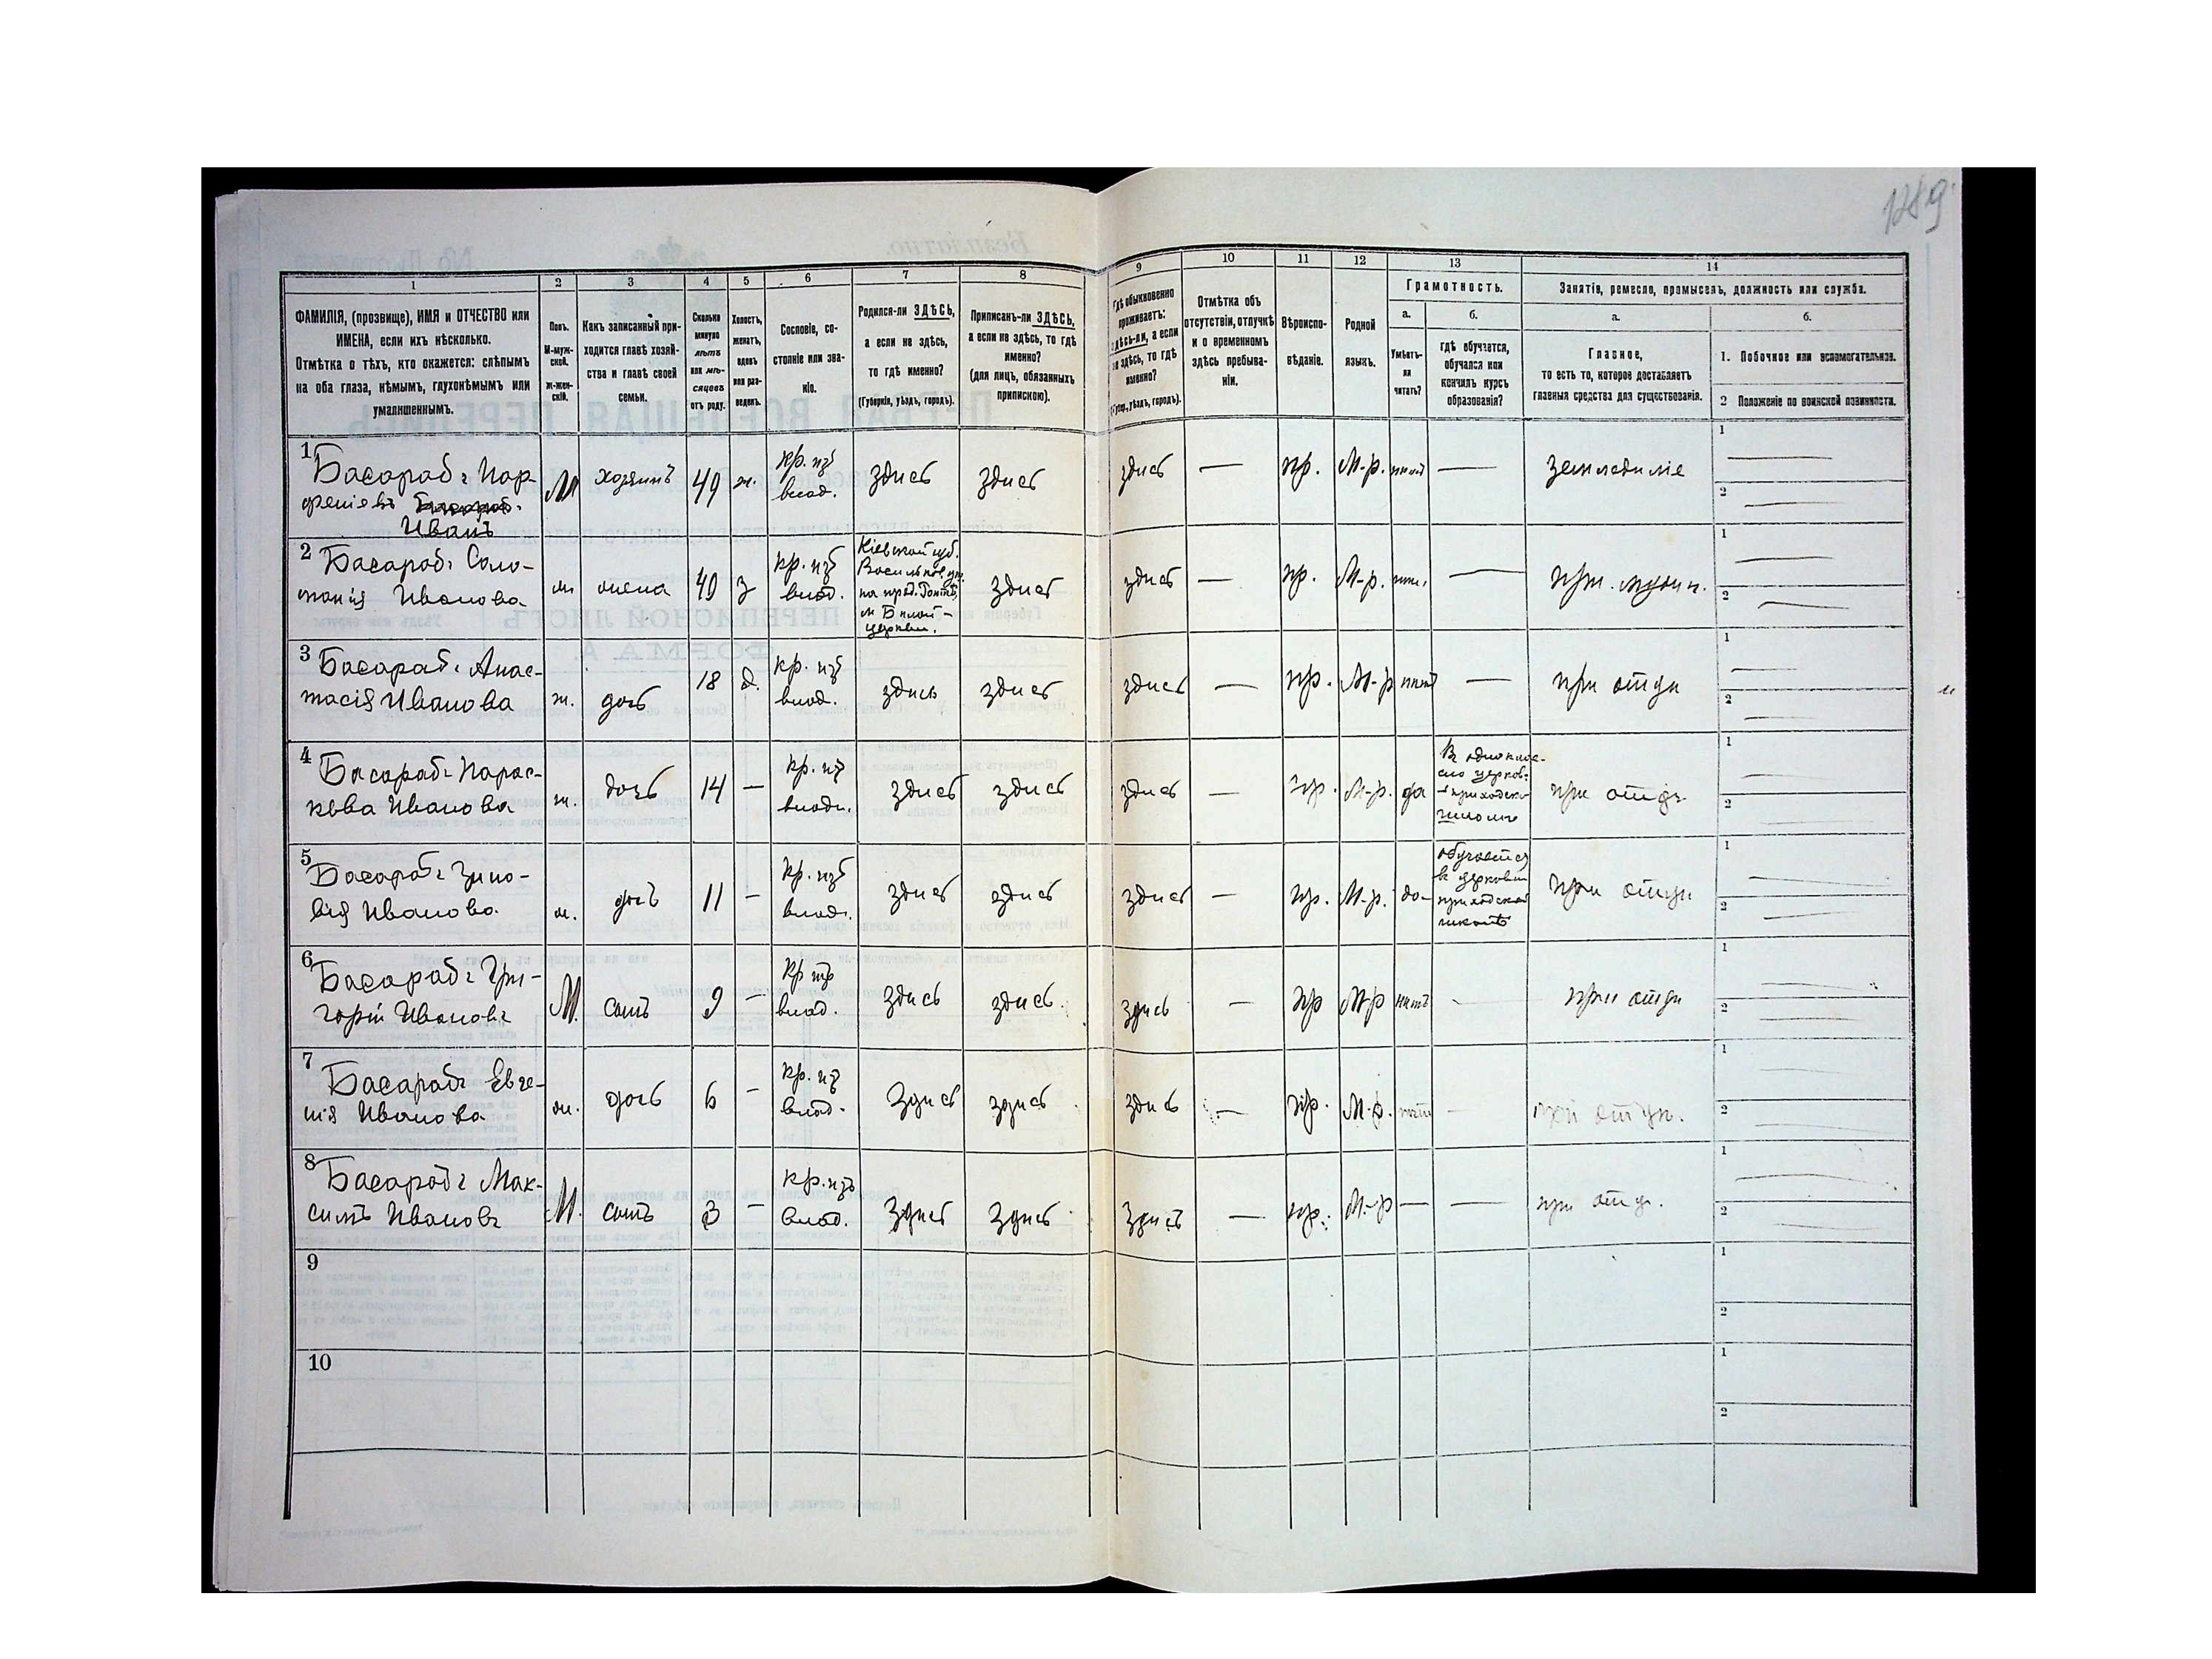 1289
1
2
3
4
5
6
7
8
9
10
11
12
13
14
ФАМИЛІЯ, (прозвище), ИМЯ и ОТЧЕСТВО или
ИМЕНА, если ихъ нѣсколько.
Отмѣтка о тѣхъ, кто окажется: слѣпымъ
на оба глаза, нѣмымъ, глухонѣмымъ или
умалишеннымъ.
Полъ.
М-муж-
ской.
ж-жен-
скій.
Какъ записанный при-
ходится главѣ хозяй-
ства и главѣ своей
семьи.
Сколько
минуло
лѣтъ
или мѣ-
сяцевъ
отъ роду.
Холостъ,
женатъ,
вдовъ
или раз-
веденъ.
Сословіе, со-
стояніе или зва-
ніе.
Родился-ли ЗДѢСЬ,
а если не здѣсь,
то гдѣ именно?
(Губернія, уѣздъ, городъ).
Приписанъ-ли ЗДѢСЬ,
а если не здѣсь, то гдѣ
именно?
(для лицъ, обязанныхъ
припискою).
Гдѣ обыкновенно
проживаетъ:
здѣсь-ли, а если
не здѣсь, то гдѣ
именно?
(Губер., уѣздъ, городъ).
Отмѣтка объ
отсутствіи, отлучкѣ
и о временномъ
здѣсь пребыва-
ніи.
Вѣроиспо-
вѣданіе.
Родной
языкъ.
Грамотность.
а.
Умѣетъ-
ли
читать?
б.
гдѣ обучается,
обучался или
кончилъ курсъ
образованія?
Занятіе, ремесло, промыселъ, должность или служба.
а.
Главное,
то есть то, которое доставляетъ
главныя средства для существованія.
б.
1. Побочное или вспомогательное.
2 Положеніе по воинской повинности.
1 Басарабъ Пар-
феніевъ
Иванъ
М хозяинъ 49 ж. кр. изъ влад. здись здись здись — пр. М-р. нитъ — земледиліе
1
2
2 Басарабъ Соло-
монія Иванова
ж жена 40 з кр. изъ влад.
Кіевской губ.
Васильков. уѣз.
м Билой-
церкви.
здись здись — пр. М-р. — при мужи.
1
2
3 Басарабъ Анас-
тасія Иванова
ж. дочь 18 д. кр. изъ влад. здись здись здись — пр. М-р нитъ — при отци
1
2
4 Басарабъ Парас-
кева Иванова
ж. дочь 14 — кр. из влад. здись здись здись — пр. М-р. да
В однокласс-
приходско
школи
при отци
1
2
5 Басарабъ Зино-
вія Иванова
ж. дочь 11 — кр. изъ влад. здись здись здись — пр. М-р. да
обучается
въ церковн
приходской
школѣ
при отци
1
2
6 Басарабъ Гри-
горій Ивановъ
М. сынъ 9 — кр изъ влад. здись здись. здись — пр М-р нитъ — при отци
1
2
7 Басарабъ Евге-
нія Иванова
ж. дочь 6 — кр. из влад. здись здись здись — пр. М-р. нитъ — при отци.
1
2
8 Басарабъ Мак-
симъ Ивановъ
М. сынъ 3 — кр. изъ влад. здись здись здись — пр. М-р — — при отц.
1
2
9
1
2
10
1
2